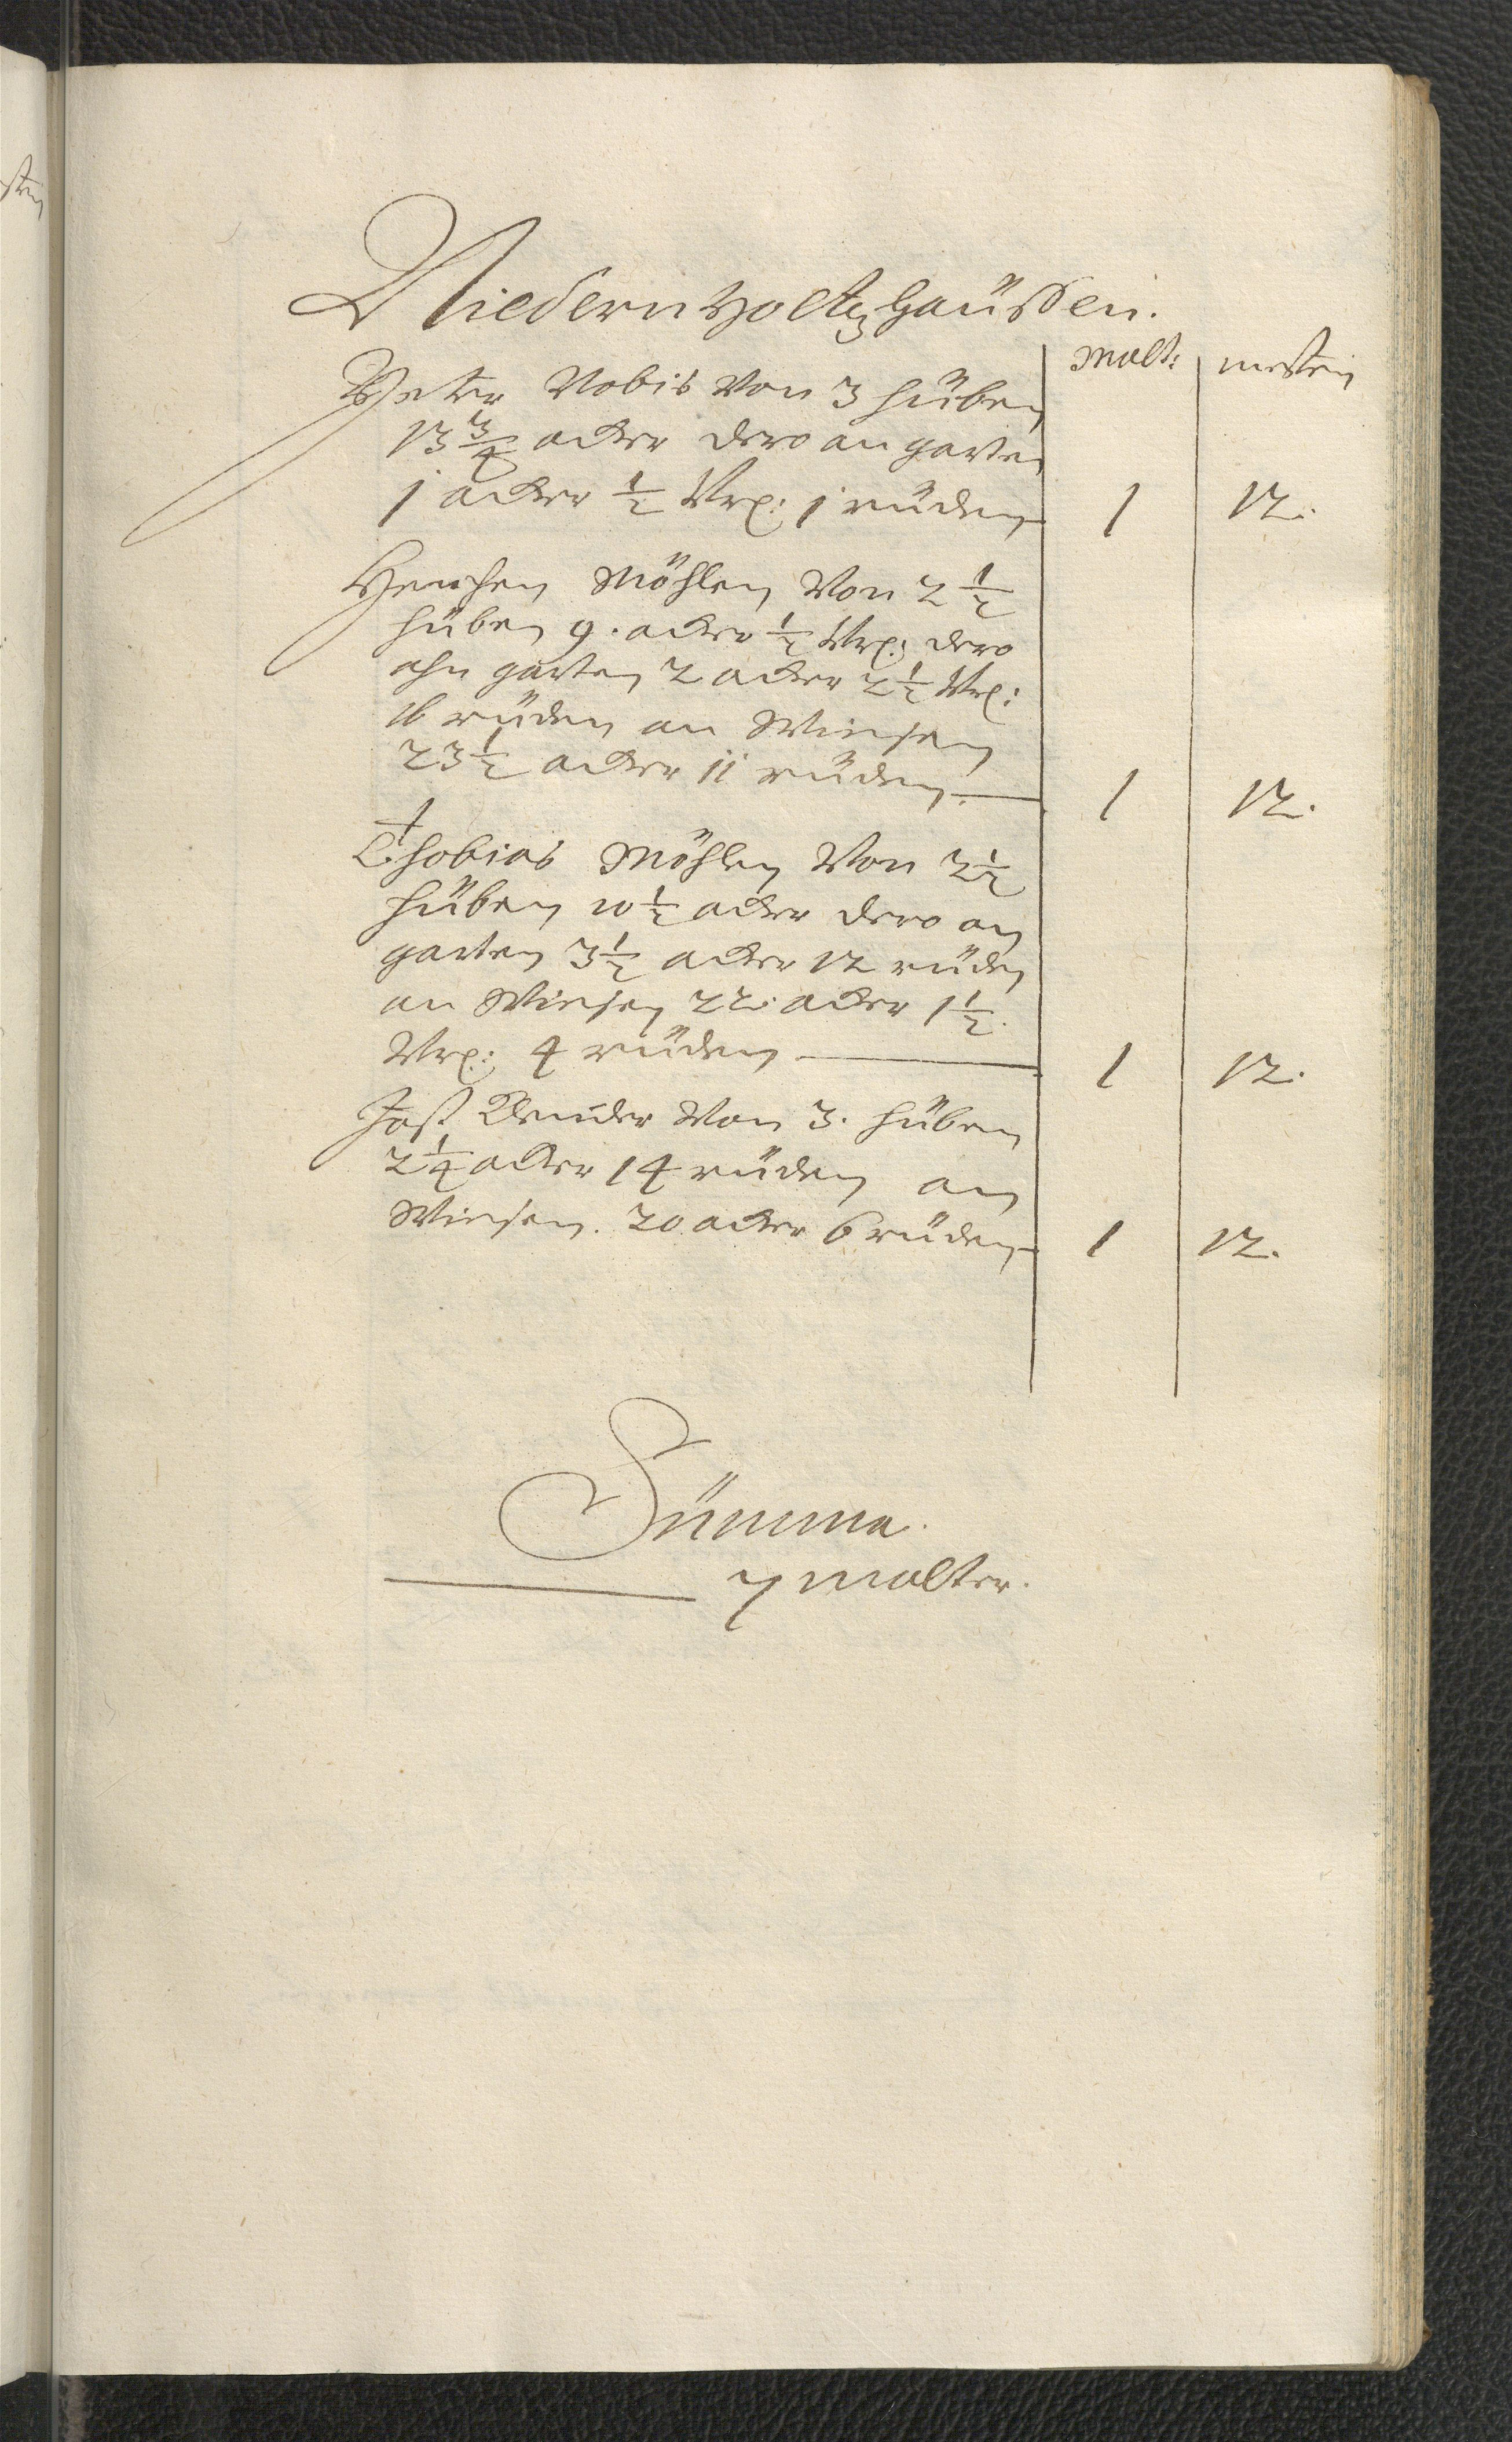 Niedern Holtzhaußen.
Malt: mesten
Peter Nobis Von 3 huben
13 3/4 acker dero an garten
1 acker 1/2 Vrg: 1 rüden 1 12.
Henchen Möhlen Von 2 1/2
hüben 9. acker 1/2 Vrg: dero
ahn garten 2 acker 2 1/2 Vrg:
16 rüden an Wiesen
23 1/2 acker 11 rüden. 1 12.
Thobias Möhlen Von 2 1/2
hüben 10 1/2 acker dero an
garten 3 1/2 acker 12 rüden
an Wiesen 22. acker 1 1/2.
Vrg: 4 rüden 1 12.
Jost Von 3. hüben
2 1/4 acker 14 rüden an
Wiesen. 20 acker 6 rüden 1 12.
Summa.
7 malter.